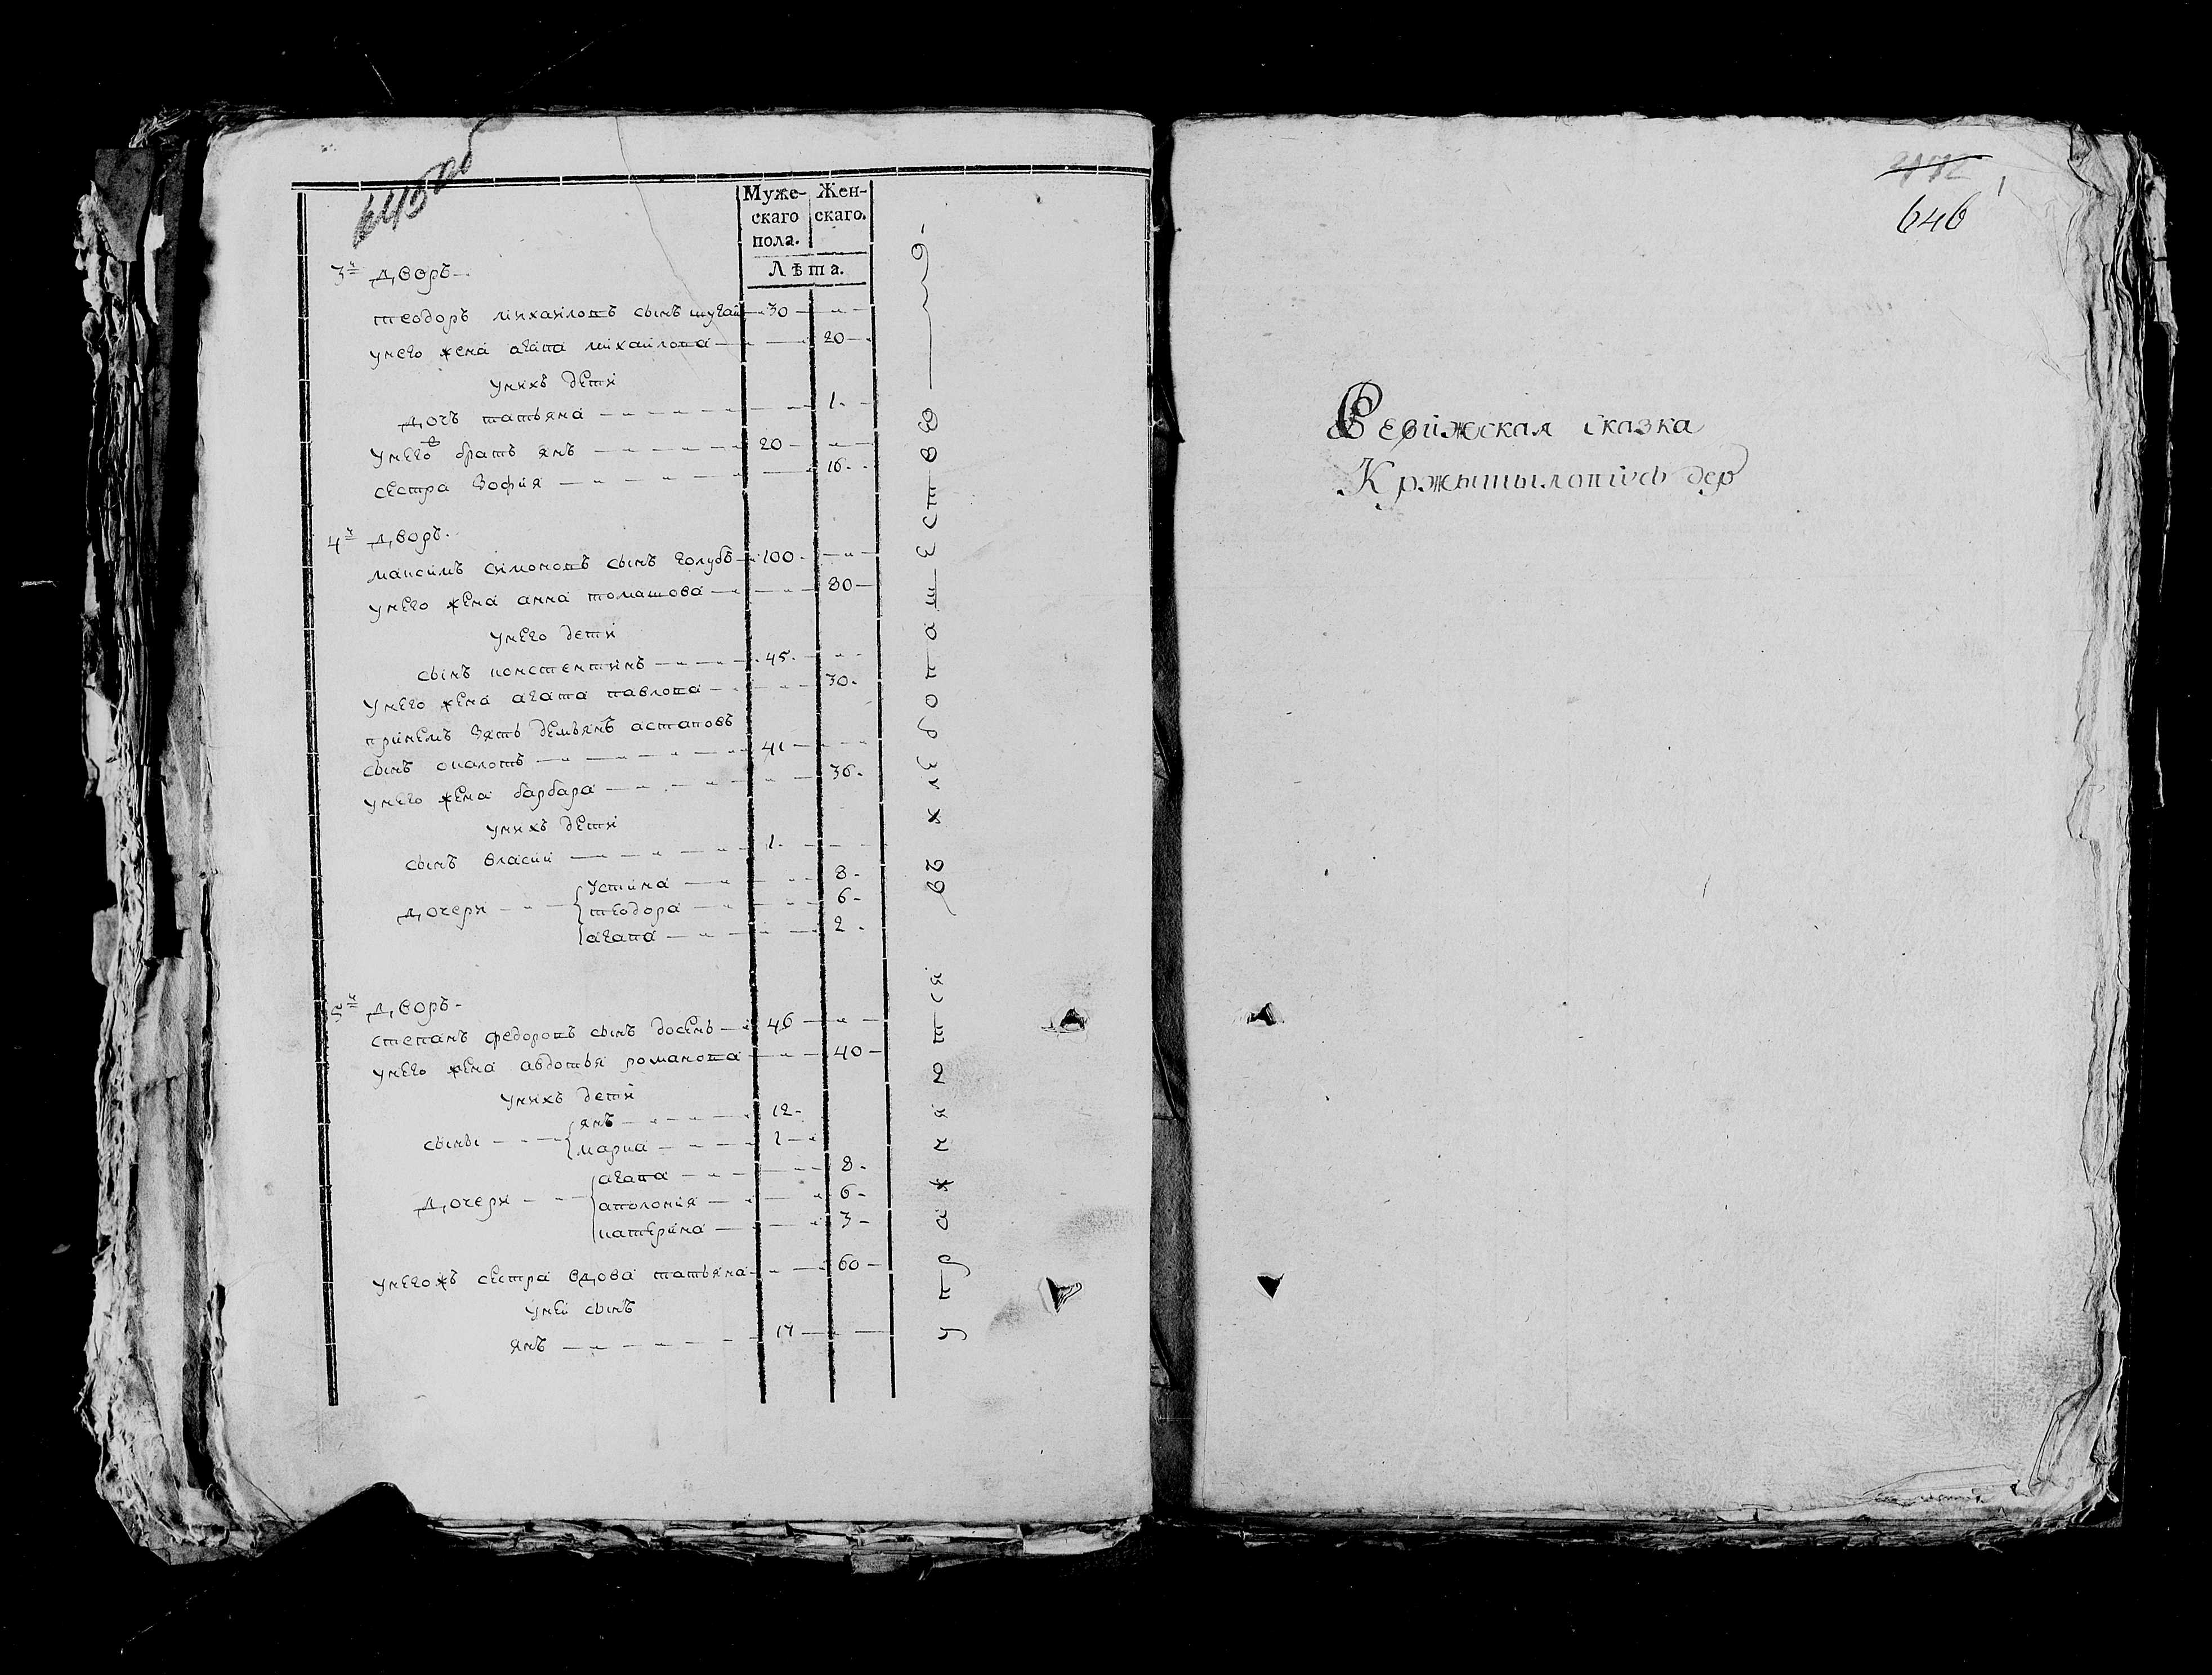 645 об
Муже- Жен-
скаго скаго.
пола.
Лѣта.
3й дворъ
теодоръ михайловъ сынъ шугай 30
унего жена агапа михайлова 20
унихъ дети
дочъ татьяна 1
унего брать янъ 20
сестра Зофия 16
4й дворъ
максимъ симоновъ сынъ голубъ 100
унего жена анна томашова 80
унего дети
сынъ констентинъ 45
унего жена агата павлова 30
принемъ Зять демьянъ астаповъ
сынъ 41
унего жена барбара 36
унихъ дети
сынъ власий 1
дочери устина 8
теодора 6
агапа 2
5й дворъ
степанъ федоровъ сынъ досень 46
унего жена авдотья романова 40
унихъ дети
сыны янъ 12
марка 2
дочери агапа 8
аполония 6
катерина 3
унегожъ сестра вдова татьяна 60
уней сынъ
янъ 17
упражняются въ хлебопашествѣ
646
Ревижская сказка
дер